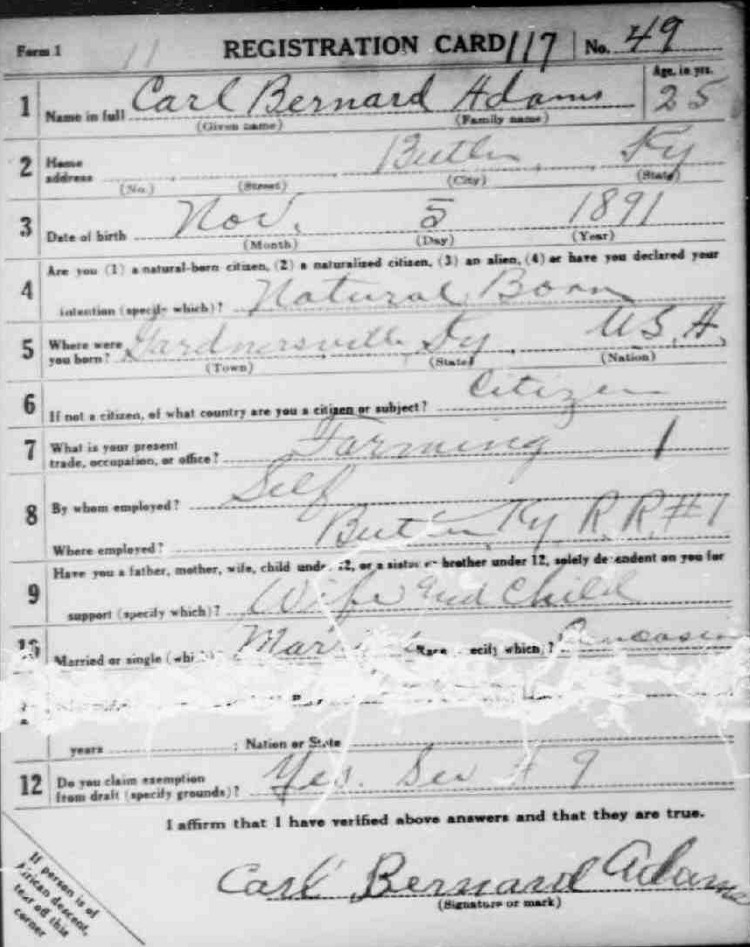 Form 1 11 REGISTRATION CARD 117 No. 49
1 Name in full Carl Bernard Adams Age, in yrs. 25
(Given name) (Family name)
2 Home address Butler, Ky
(No.) (Street) (City) (State)
3 Date of birth Nov. 5 1891
(Month) (Day) (Year)
4 Are you (1) a natural-born citizen, (2) a naturalized citizen, (3) an alien, (4) or have you declared your
intention (specify which)? Natural Born
5 Where were you born? Gardnersville Ky U.S.A.
(Town) (State) (Nation)
6 If not a citizen, of what country are you a citizen or subject? Citizen
7 What is your present
trade, occupation, or office? Farming 1
8 By whom employed? Self
Where employed? Butler Ky R.R.#1
9 Have you a father, mother, wife, child under 12, or a sister or brother under 12, solely dependent on you for
support (specify which)? Wife and Child
10 Married or single (which)? Married Race (specify which)? Caucasian
years ; Nation or State
12 Do you claim exemption
from draft (specify grounds)? Yes. See # 9
I affirm that I have verified above answers and that they are true.
Carl Bernard Adams
(Signature or mark)
If person is of
African descent,
tear off this
corner